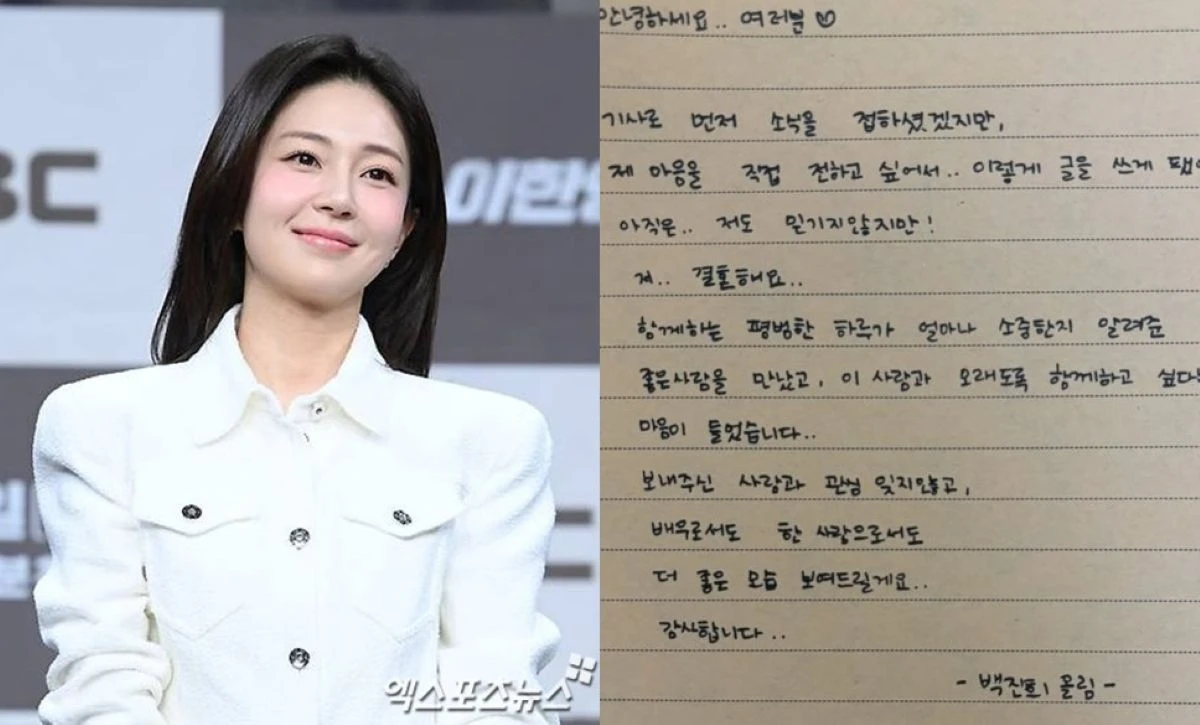 BC
이한영
엑스포츠뉴스
안녕하세요.. 여러분 ♡
기사로 먼저 소식을 접하셨겠지만,
제 마음을 직접 전하고 싶어서.. 이렇게 글을 쓰게 됐어
아직은.. 저도 믿기지않지만!
저.. 결혼해요..
함께하는 평범한 하루가 얼마나 소중한지 알려준
좋은사람을 만났고, 이 사람과 오래도록 함께하고 싶다는
마음이 들었습니다..
보내주신 사랑과 관심 잊지않고,
배우로서도 한 사람으로서도
더 좋은 모습 보여드릴게요..
감사합니다..
- 백진희 올림 -